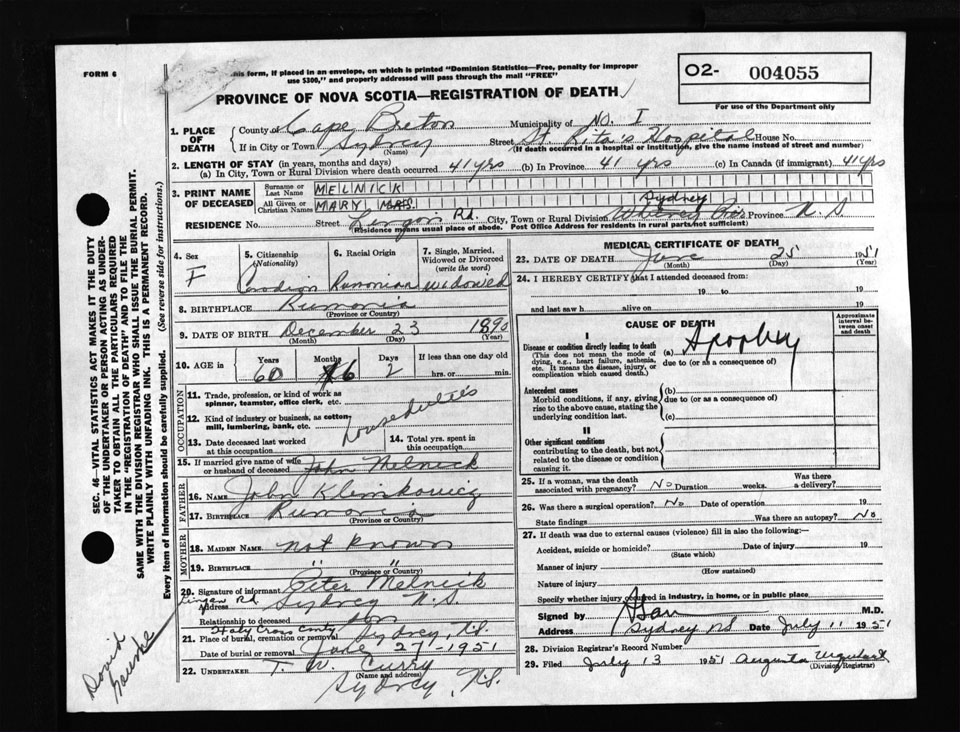 FORM 6
this form, if placed in an envelope, on which is printed "Dominion Statistics—Free, penalty for improper
use $300," and properly addressed will pass through the mail "FREE"
O2- 004055
For use of the Department only
PROVINCE OF NOVA SCOTIA—REGISTRATION OF DEATH
1. PLACE OF DEATH
County of Cape Breton Municipality of No. I
If in City or Town Sydney Street St. Rita's Hospital House No.
(Name) (If death occurred in a hospital or institution, give the name instead of street and number)
2. LENGTH OF STAY (in years, months and days)
(a) In City, Town or Rural Division where death occurred 41 yrs (b) In Province 41 yrs (c) In Canada (if immigrant) 41 yrs
3. PRINT NAME OF DECEASED
Surname or Last Name MELNICK
All Given or Christian Names MARY, MRS.
Sydney
RESIDENCE No. Street Lingan Rd. City, Town or Rural Division Whitney Pier Province N.S.
(Residence means usual place of abode. Post Office Address for residents in rural parts not sufficient)
4. Sex F
5. Citizenship (Nationality) Canadian
6. Racial Origin Rumanian
7. Single, Married, Widowed or Divorced (write the word) widowed
8. BIRTHPLACE Rumania
(Province or Country)
9. DATE OF BIRTH December 23 1890
(Month) (Day) (Year)
10. AGE in Years 60 Months 6 Days 2 If less than one day old
hrs. or min.
OCCUPATION
11. Trade, profession, or kind of work as
spinner, teamster, office clerk, etc.
12. Kind of industry or business, as cotton-
mill, lumbering, bank, etc.
13. Date deceased last worked
at this occupation
14. Total yrs. spent in
this occupation
15. If married give name of wife
or husband of deceased John Melnick
FATHER
16. Name John
17. Birthplace Rumania
(Province or Country)
MOTHER
18. MAIDEN NAME not known
19. BIRTHPLACE " "
(Province or Country)
20. Signature of informant Peter Melnick
Lingan Rd.
Address Sydney N.S.
Relationship to deceased son
Holy Cross
21. Place of burial, cremation or removal Sydney, N.S.
Date of burial or removal June 27-1951
22. UNDERTAKER T. W. Curry
(Name and address)
Sydney, N.S.
MEDICAL CERTIFICATE OF DEATH
23. DATE OF DEATH June 25 1951
(Month) (Day) (Year)
24. I HEREBY CERTIFY that I attended deceased from:
19 to 19
and last saw h alive on 19
CAUSE OF DEATH
Approximate interval between onset and death
I
Disease or condition directly leading to death
(This does not mean the mode of
dying, e.g., heart failure, asthenia,
etc. It means the disease, injury, or
complication which caused death.)
(a)
due to (or as a consequence of)
Antecedent causes
Morbid conditions, if any, giving
rise to the above cause, stating the
underlying condition last.
(b)
due to (or as a consequence of)
(c)
II
Other significant conditions
contributing to the death, but not
related to the disease or condition
causing it.
25. If a woman, was the death
associated with pregnancy? No Duration weeks. Was there a delivery?
26. Was there surgical operation? No Date of operation 19
State findings Was there an autopsy? No
27. If death was due to external causes (violence) fill in also the following:—
Accident, suicide or homicide? Date of injury 19
(State which)
Manner of injury
(How sustained)
Nature of injury
Specify whether injury occurred in industry, in home, or in public place
Signed by M.D.
Address Sydney NS Date July 11 1951
28. Division Registrar's Record Number
29. Filed July 13 1951 Augusta Urquhart
(Division Registrar)
SEC. 46—VITAL STATISTICS ACT MAKES IT THE DUTY
OF THE UNDERTAKER OR PERSON ACTING AS UNDER-
TAKER TO OBTAIN ALL THE PARTICULARS REQUIRED
IN THE "REGISTRATION OF DEATH" AND TO FILE THE
SAME WITH THE DIVISION REGISTRAR WHO SHALL ISSUE THE BURIAL PERMIT.
WRITE PLAINLY WITH UNFADING INK. THIS IS A PERMANENT RECORD.
Every item of information should be carefully supplied. (See reverse side for instructions.)
David